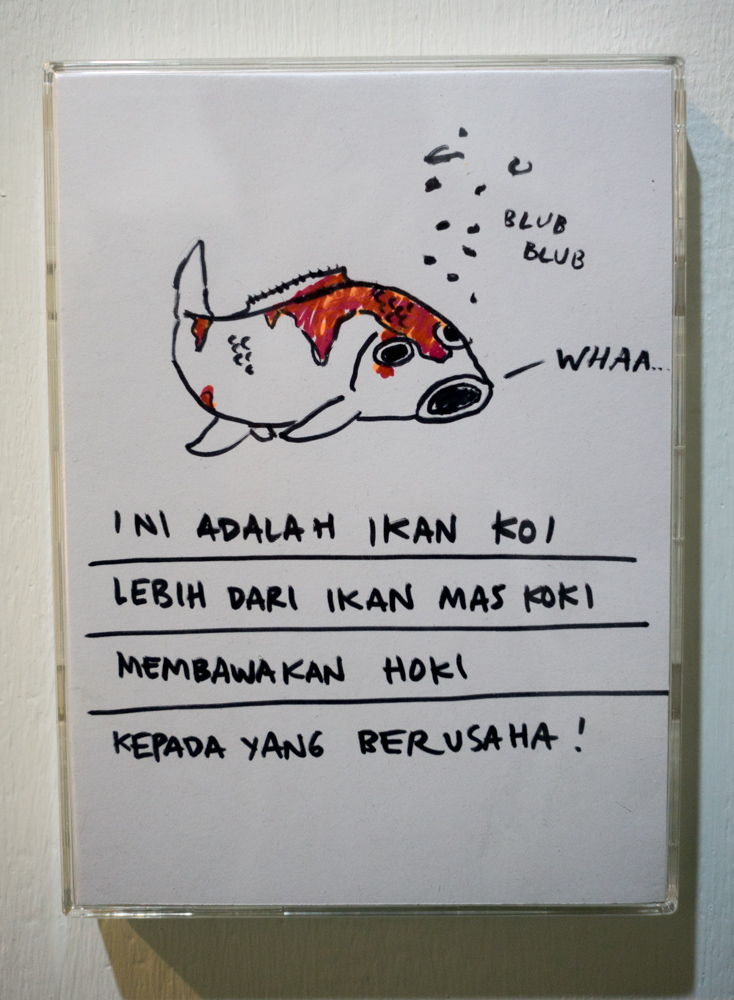 BLUB
BLUB
WHAA...
INI ADALAH IKAN KOI
LEBIH DARI IKAN MAS KOKI
MEMBAWAKAN HOKI
KEPADA YANG BERUSAHA!